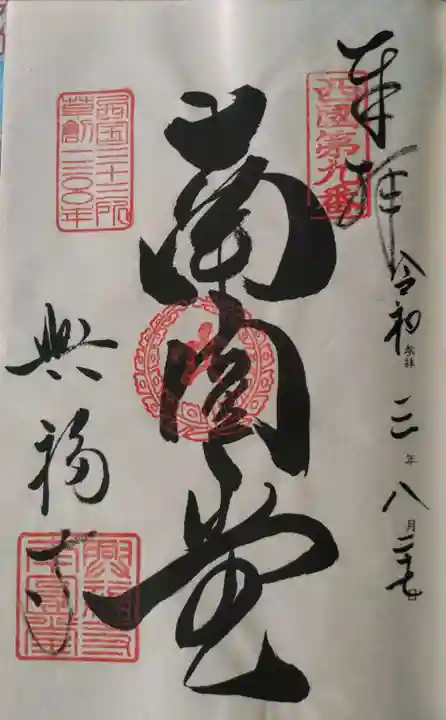 奉拝
西國第九番
令和三年八月二七日
南圓堂
西国三十三所
草創一三〇〇年
興福寺
興福寺
南圓堂